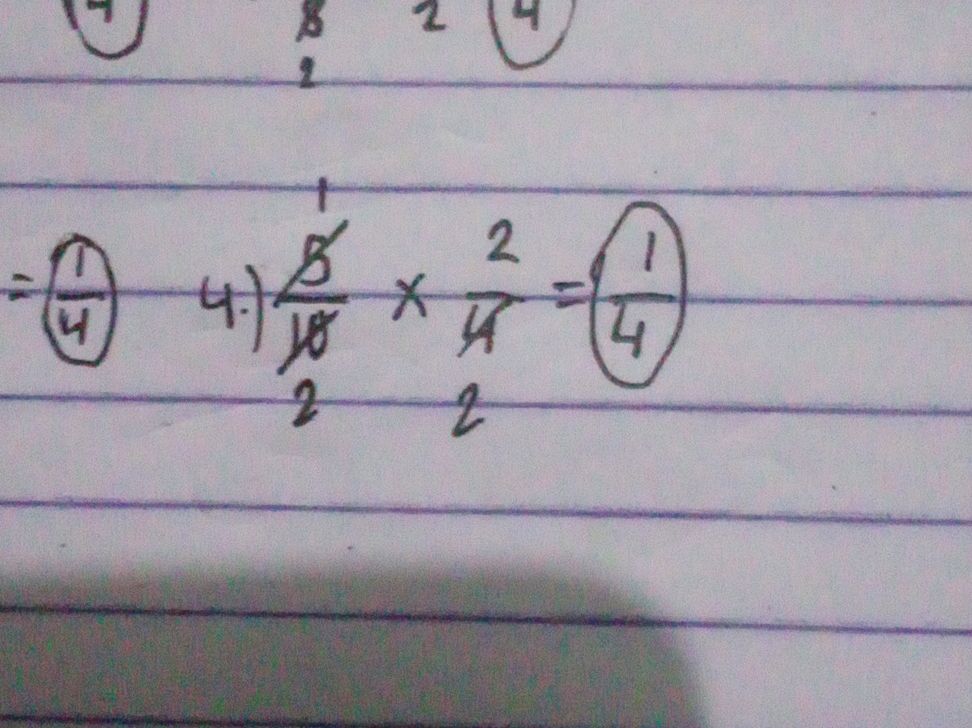 4 8 2 4
2
1
= 1/4 4.) 5/10 × 2/4 = 1/4
2 2